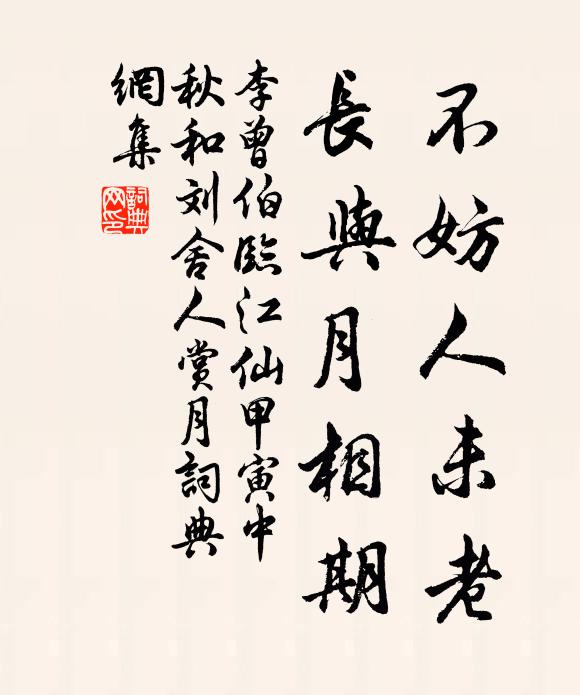 不妨人未老
長與月相期
李曾伯臨江仙甲寅中
秋和刘舍人賞月詞典
網集
詞典网印